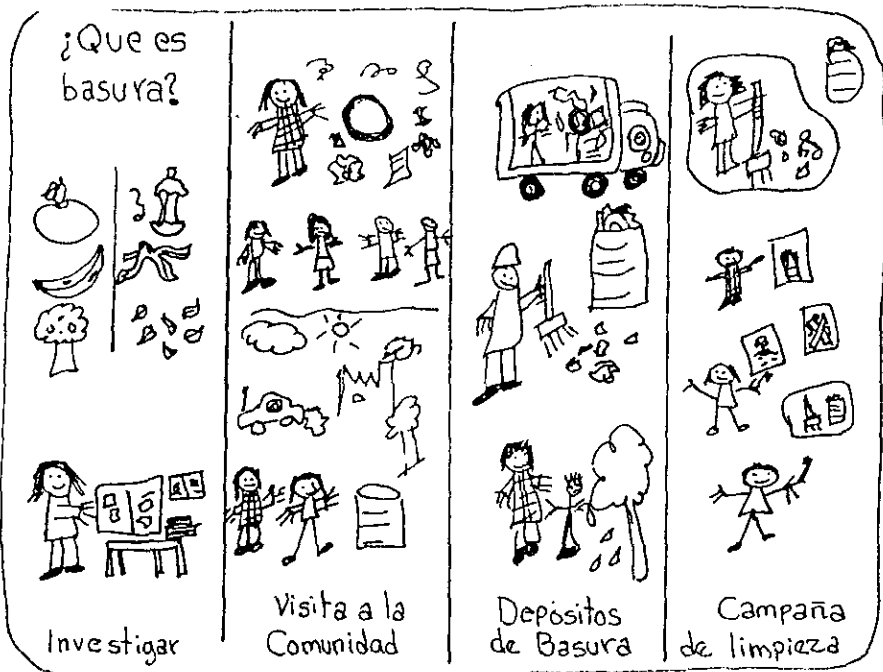 ¿Que es
basura?
Investigar
Visita a la
Comunidad
Depósitos
de Basura
Campaña
de limpieza